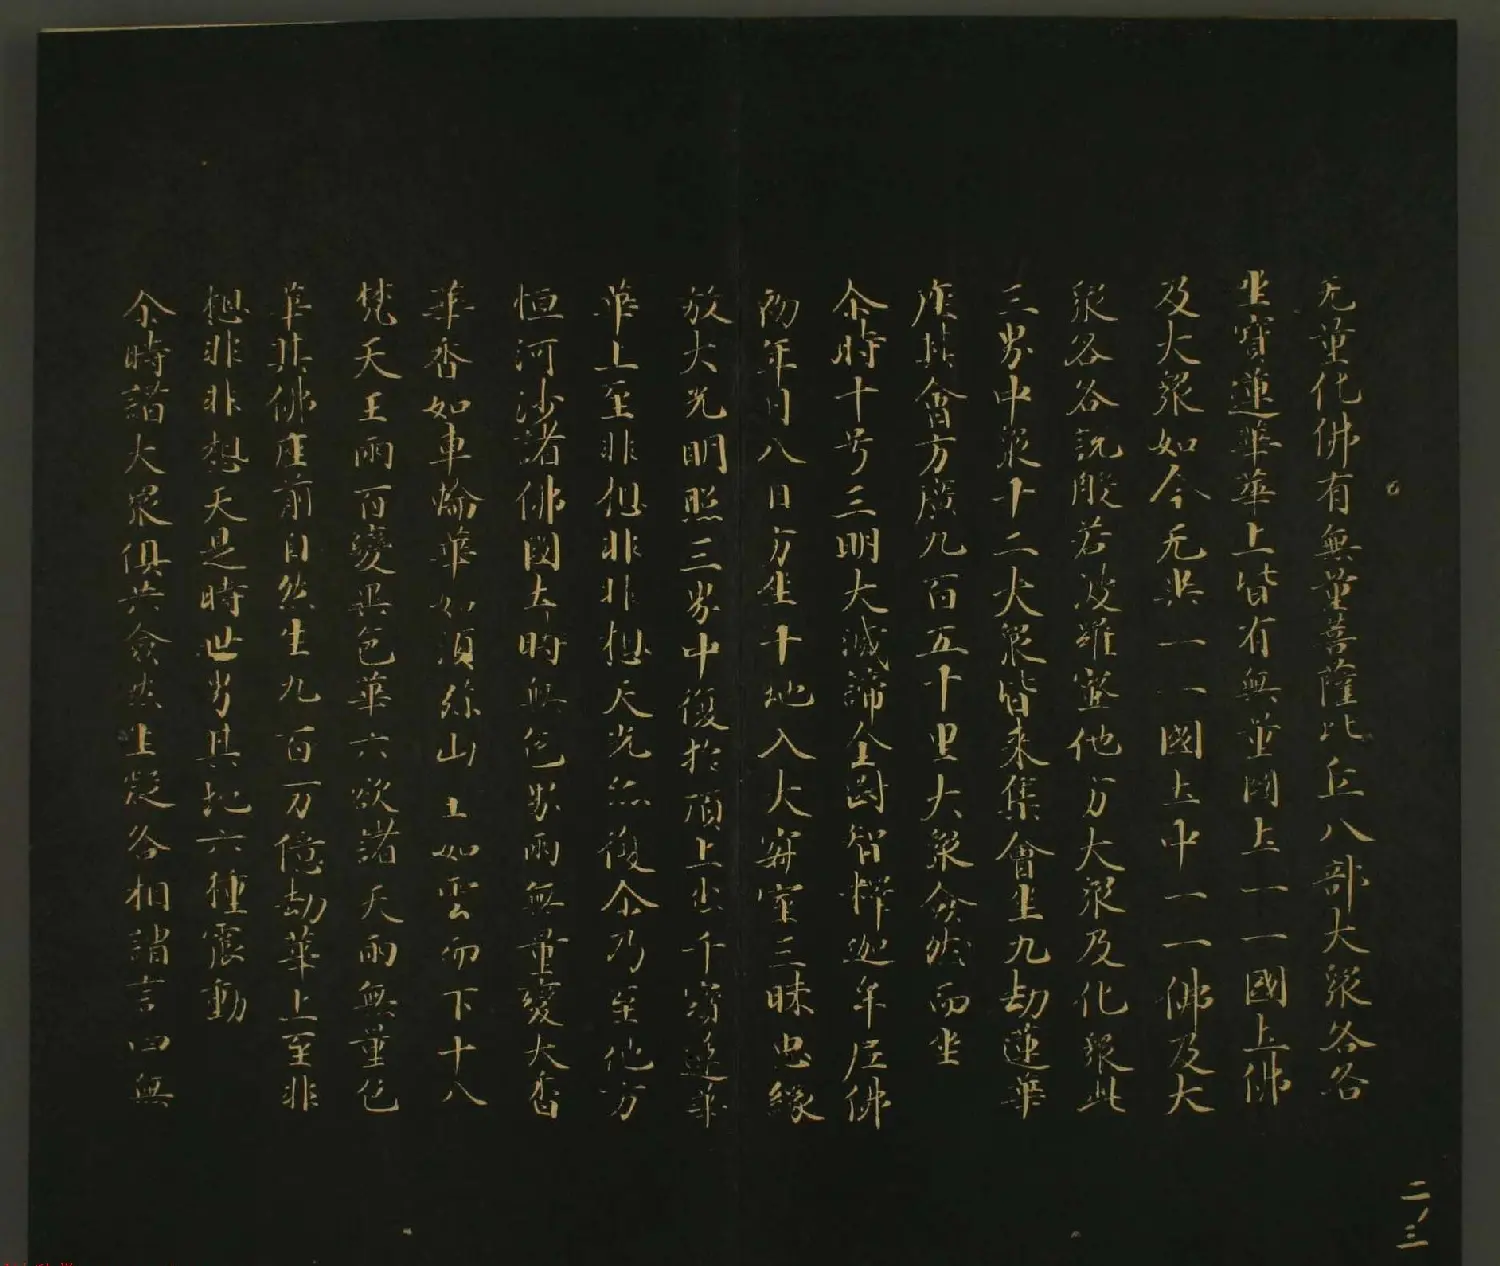 无量化佛有無量菩薩比丘八部大衆各各
坐寶蓮華華上皆有無量國土一一國土佛
及大衆如今无異一一國土中一一佛及大
衆各各説般若波羅蜜他方大衆及化衆此
三界中衆十二大衆皆来集會坐九劫蓮華
座其會方廣九百五十里大衆僉然而坐
尒時十号三明大滅諦金剛智釋迦牟尼佛
初年月八日方坐十地入大寂室三昧思緣
放大光明照三界中復扵頂上出千寳蓮華
華上至非想非非想天光亦復尒乃至他方
恒河沙諸佛國土時無色界雨無量變大香
華香如車輪華如須弥山王如雲而下十八
梵天王雨百變異色華六欲諸天雨無量色
華其佛座前自然生九百万億劫華上至非
想非非想天是時世界其地六種震動
尒時諸大衆俱共僉然生疑各相謂言四無
二ノ三